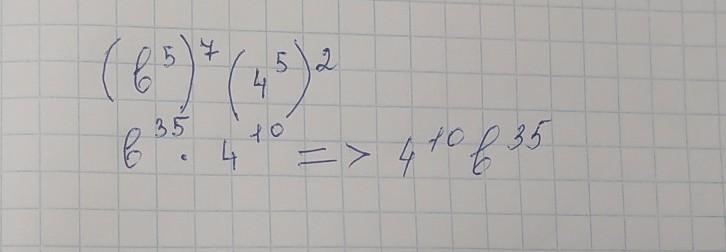 (b⁵)⁷(4⁵)²
b³⁵ · 4¹⁰ => 4¹⁰b³⁵